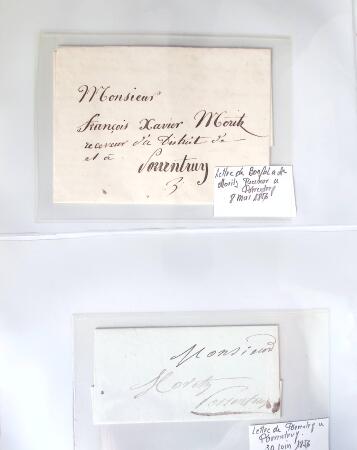 Monsieur
François Xavier Moritz
receveur du District de
et à Porrentruy
Lettre de Bonfol a
Moritz Receveur a
Porrentruy
8 Mai
Monsieur
Moritz
Porrentruy
Lettre de Porrentruy a
Porrentruy.
30 Juin